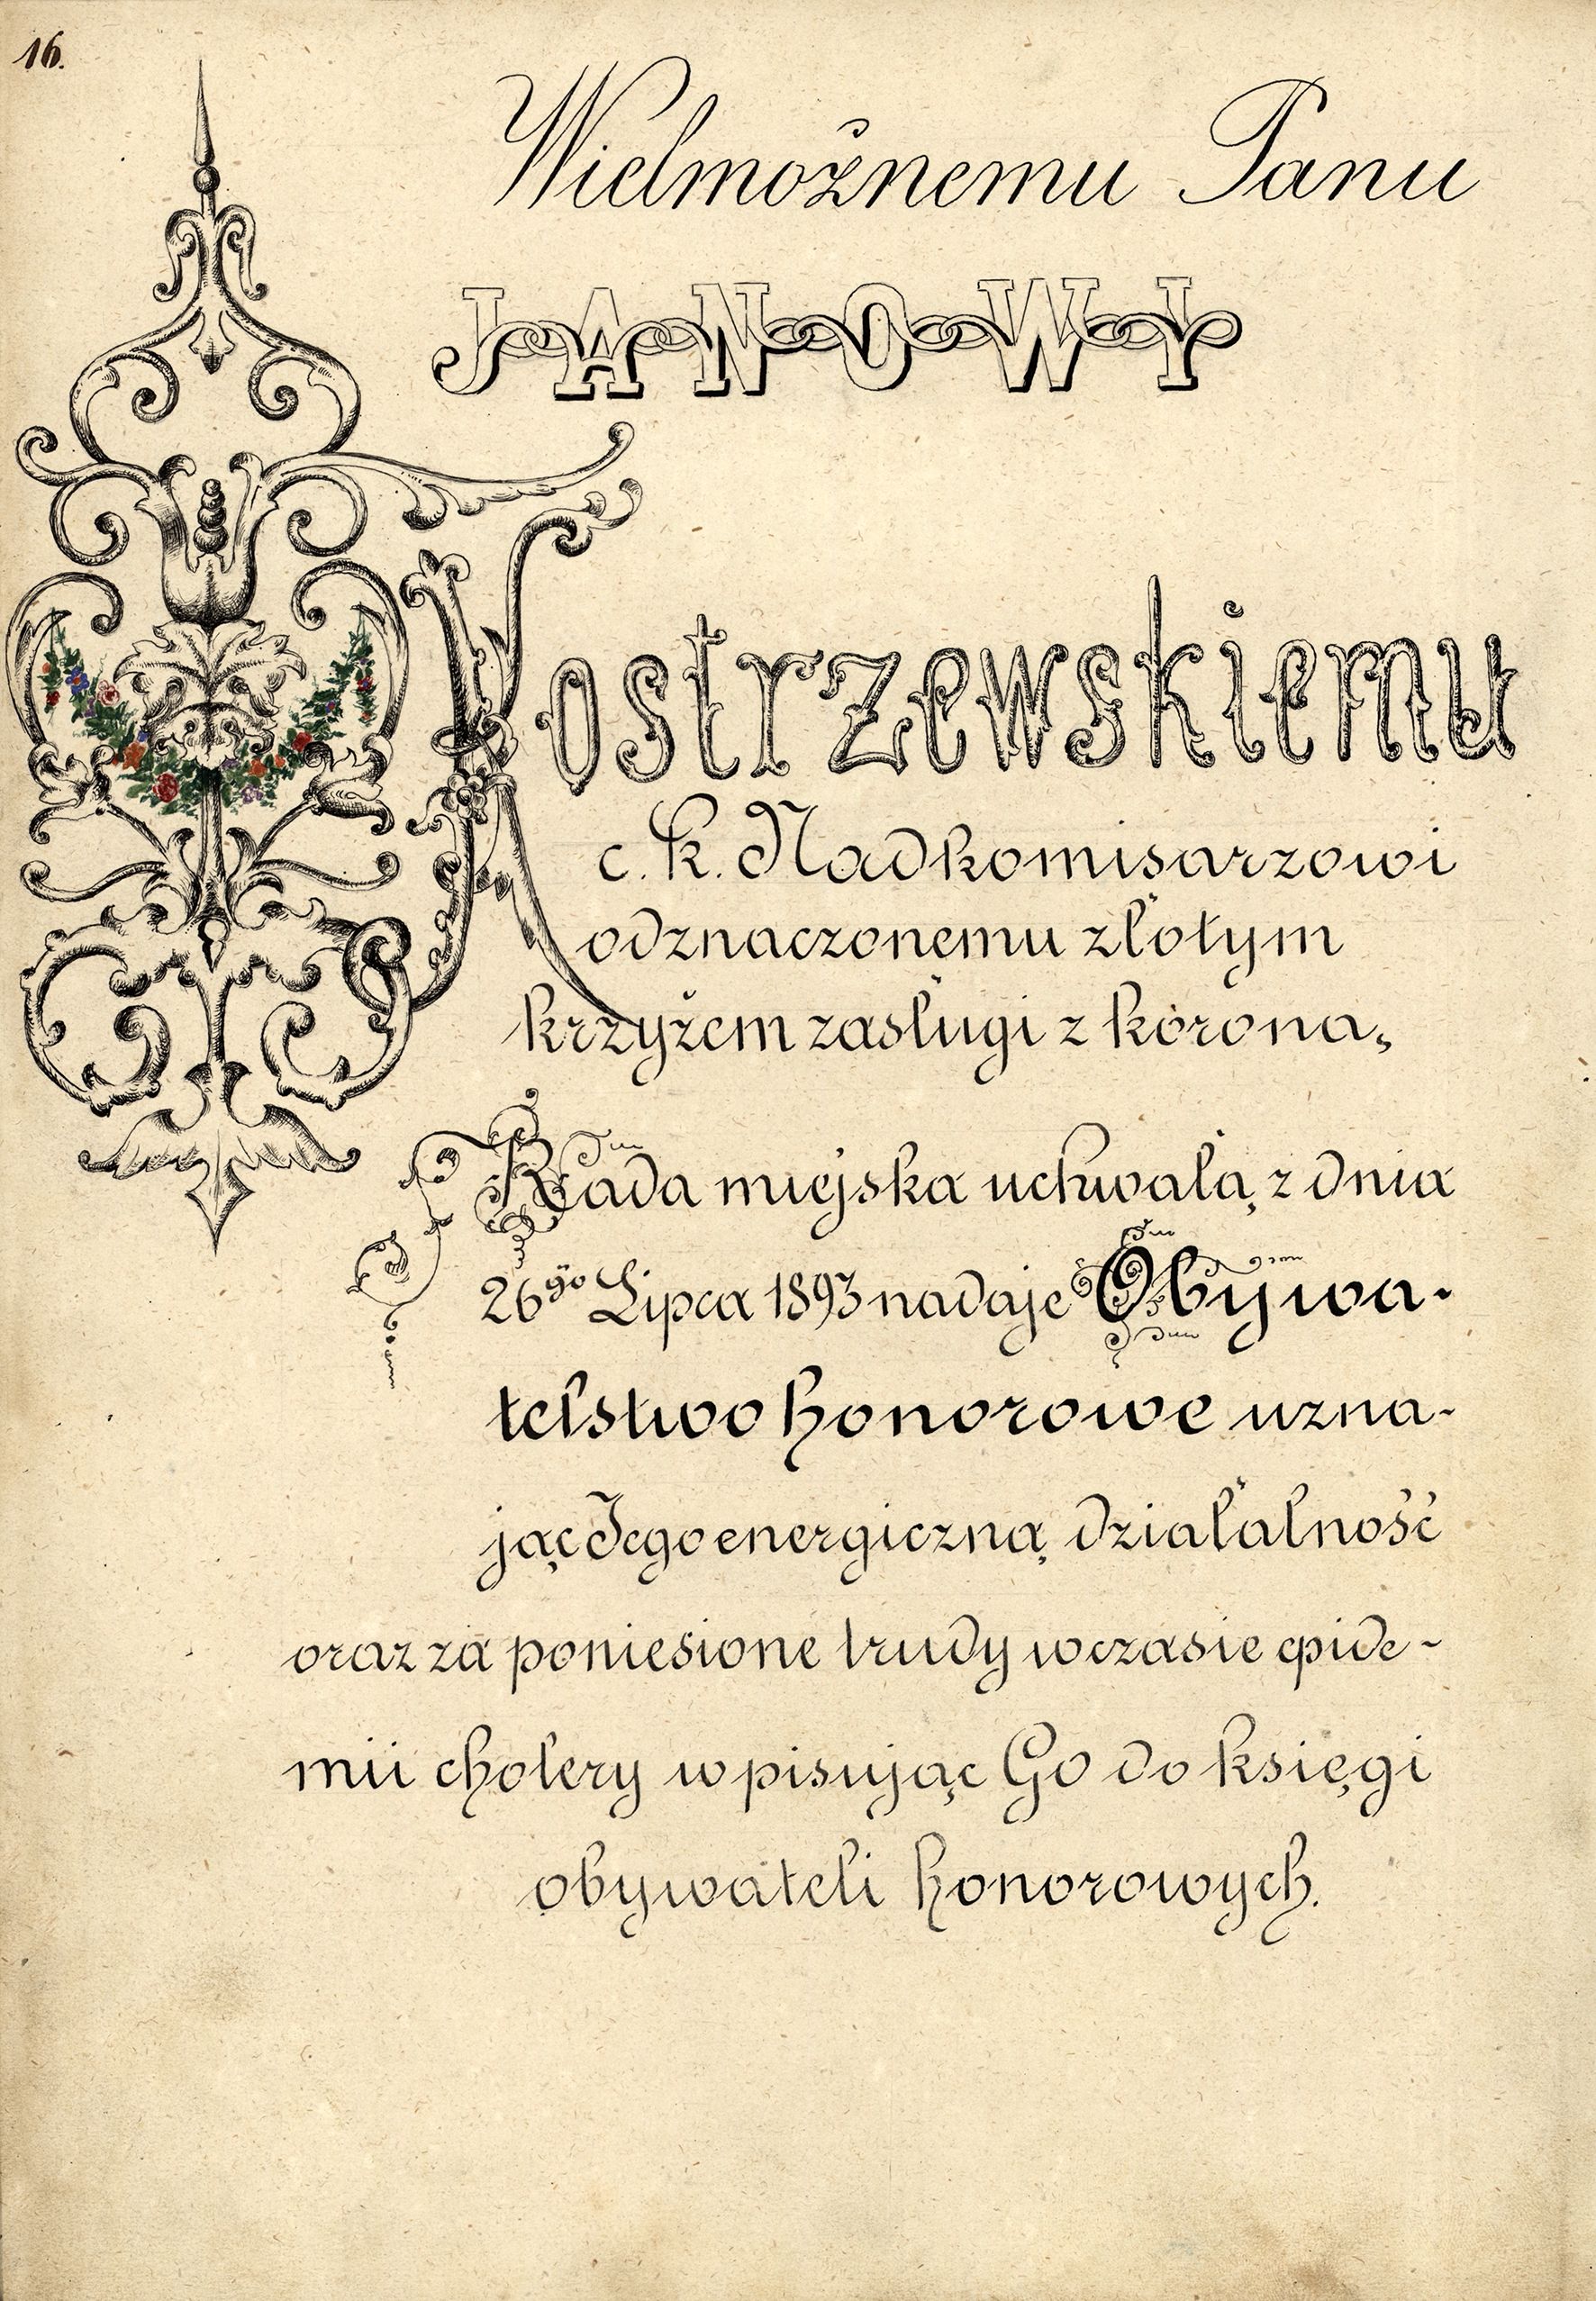 16.
Wielmożnemu Panu
JANOWI
Kostrzewskiemu
c. k. Nadkomisarzowi
odznaczonemu złotym
krzyżem zasługi z koroną
Rada miejska uchwałą z dnia
26go Lipca 1893 nadaje Obywa-
telstwo honorowe uzna-
jąc Jego energiczną działalność
oraz za poniesione trudy w czasie epide-
mii cholery wpisując Go do księgi
obywateli honorowych.